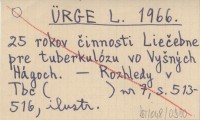 ÜRGE L. 1966.
25 rokov činnosti Liečebne
pre tuberkulózu vo Vyšných
Hágoch. — Rozhledy
Tbc (        ) nr 7, s. 513-
516, ilustr.